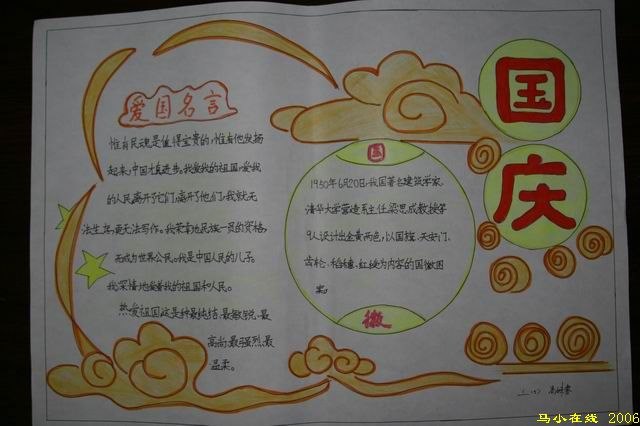 国庆
爱国名言
惟有民魂是值得宝贵的,惟有他发扬
起来,中国才有真进步。我爱我的祖国,爱我
的人民,离开了它们,离开了他们,我就无
法生存,更无法写作。我荣膺地民族一员的资格,
而成为世界公民。我是中国人民的儿子。
我深情地爱着我的祖国和人民。
热爱祖国,这是一种最纯洁、最敏锐、最
高尚、最强烈、最
温柔、
国
1950年6月20日,我国著名建筑学家、
清华大学营造系主任梁思成教授等
9人设计出金黄两色,以国旗、天安门、
齿轮、稻穗、红绫为内容的国徽图
案。
徽
马小在线 2006